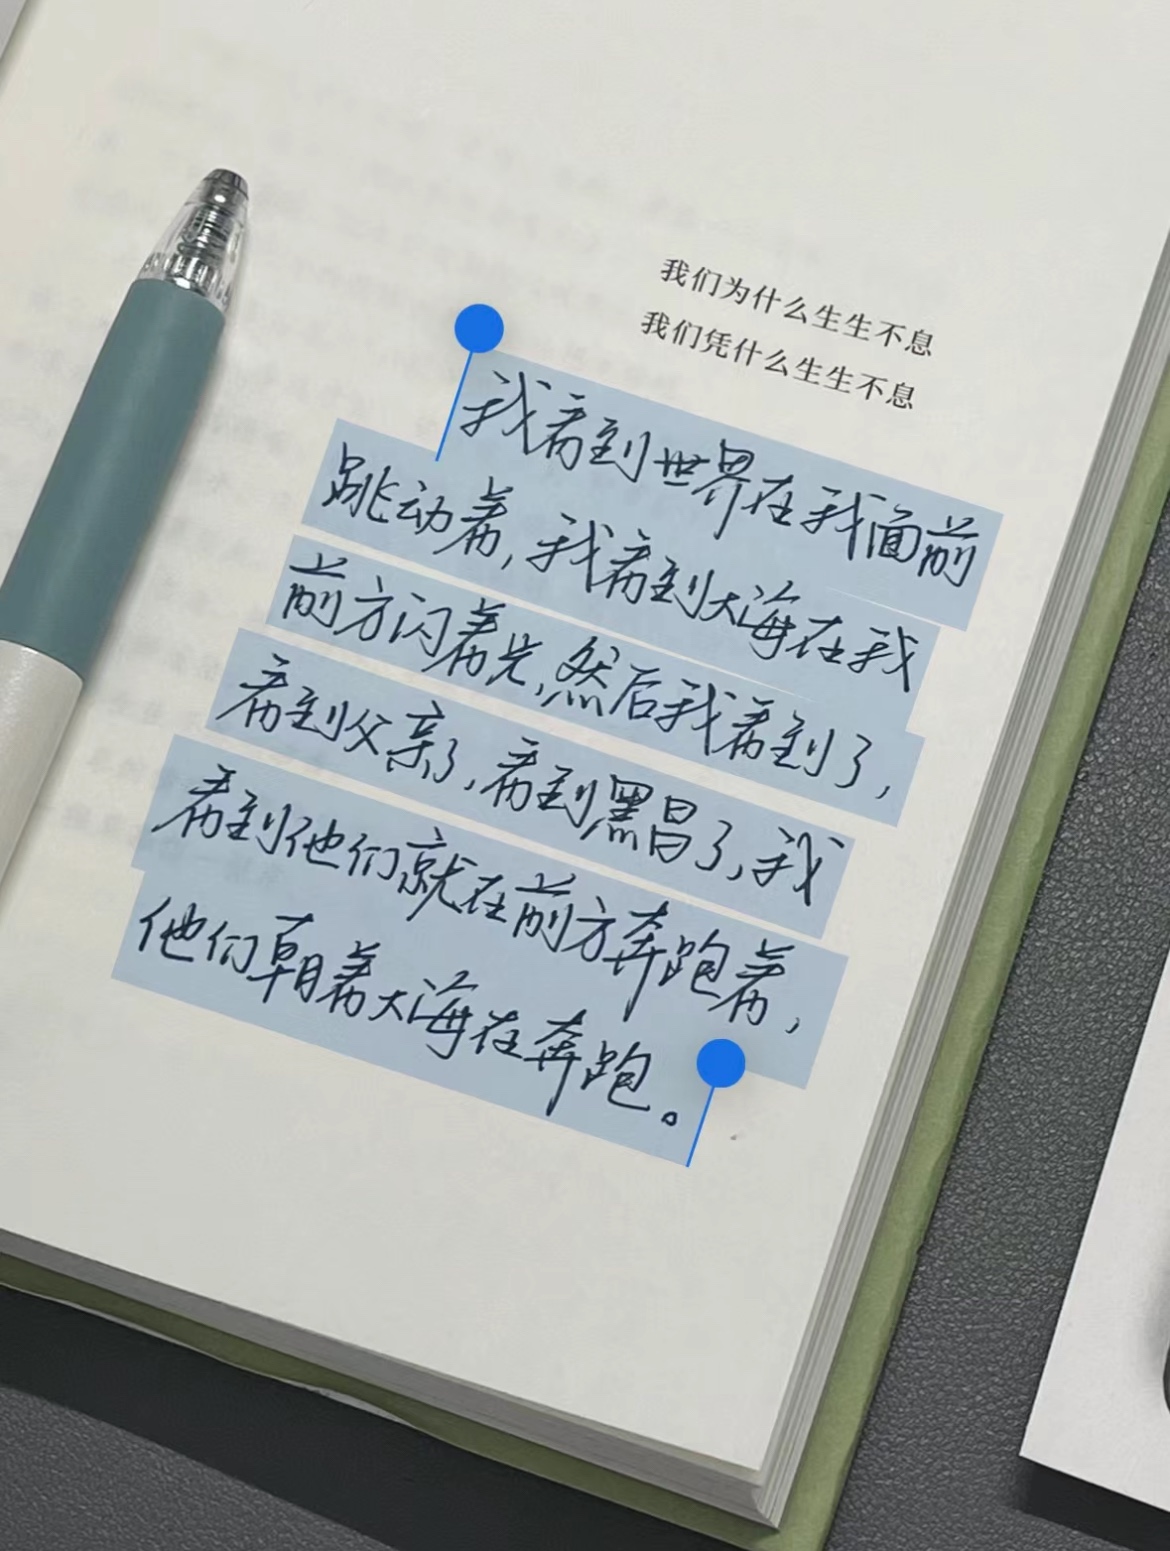 我们为什么生生不息
我们凭什么生生不息
我看到世界在我面前
跳动着,我看到大海在我
前方闪着光,然后我看到了,
看到父亲了,看到黑昌了,我
看到他们就在前方奔跑着,
他们朝着大海在奔跑。